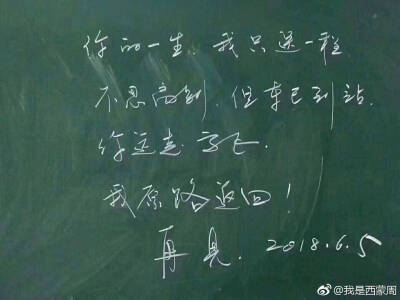 你的一生,我只送一程
不忍离别,但车已到站.
你远走高飞.
我原路返回!
再见. 2018.6.5
@我是西蒙周